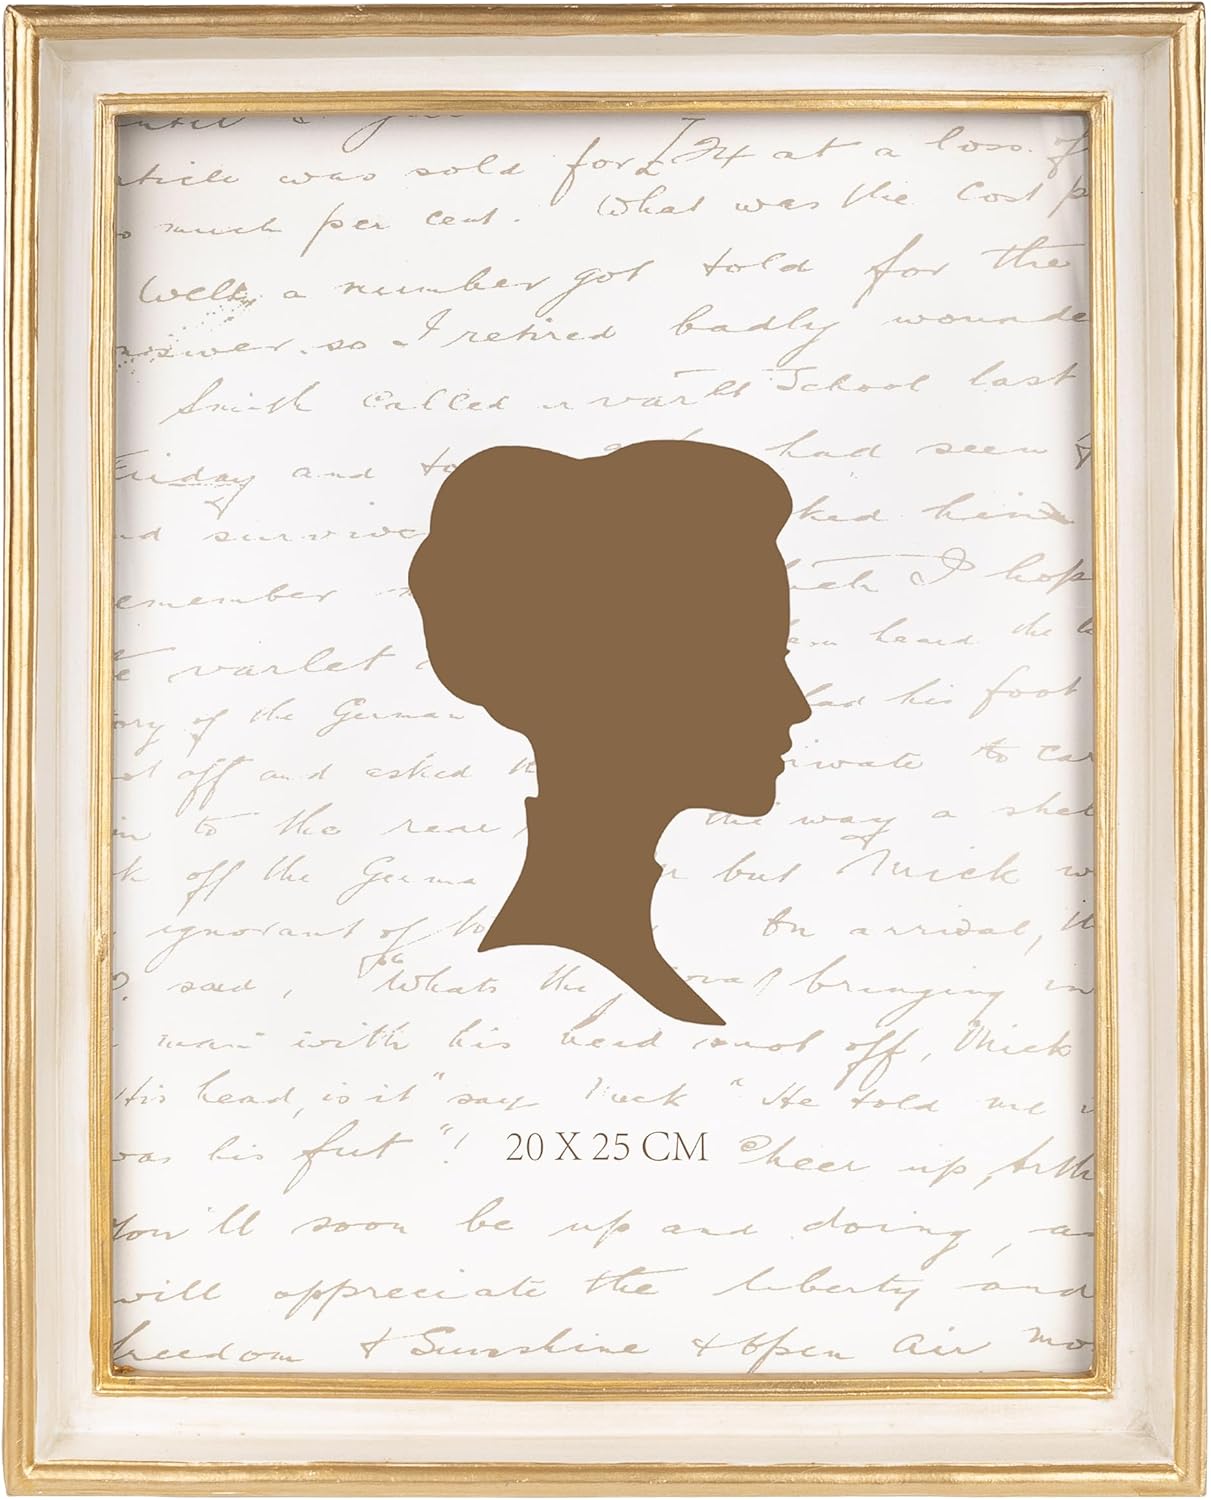 article was sold for £24 at a loss of
so much per cent. What was the Cost p
Well, a number got told for the
answer, so I retired badly wounde
Smith called a varlet School last
Friday and to had seen
nd survive ked him
emember which I hop
varlet heard the
ory of the German had his foot
off and asked rivate to car
in to the rear, the way a shel
k off the Germa n but Mick w
ignorant of On arrival,
said, "Whats the bringing in
man with his head not off, Mick
His head, is it" say Mick" He told me
was his fut"! 20 X 25 CM Cheer up, Arth
You'll soon be up and doing, an
will appreciate the liberty and
freedom & Sunshine & open air mo